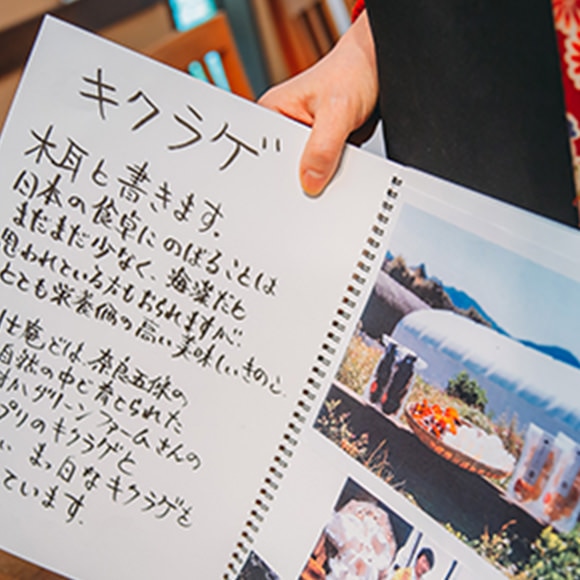 キクラゲ
木耳と書きます。
日本の食卓にのぼることは
まだまだ少なく、海藻だと
思われている方もおられますが、
とても栄養価の高い美味しいきのこ。
庵では、奈良五條の
自然の中で育てられた
グリーンファームさんの
プリのキクラゲと
まっ白なキクラゲを
ています。